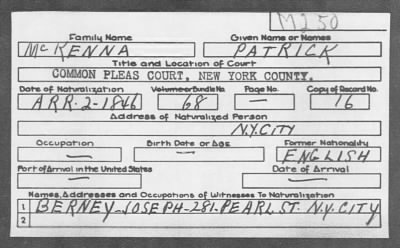 M250
Family Name Given Name or Names
McKENNA PATRICK
Title and Location of Court
COMMON PLEAS COURT, NEW YORK COUNTY.
Date of Naturalization Volume or Bundle No. Page No. Copy of Record No.
APR-2-1846 68 — 16
Address of Naturalized Person
N.Y. CITY
Occupation Birth Date or Age Former Nationality
— — ENGLISH
Port of Arrival in the United States Date of Arrival
— —
Names, Addresses and Occupations of Witnesses To Naturalization
1 BERNEY-JOSEPH-281-PEARL ST. N.Y. CITY
2